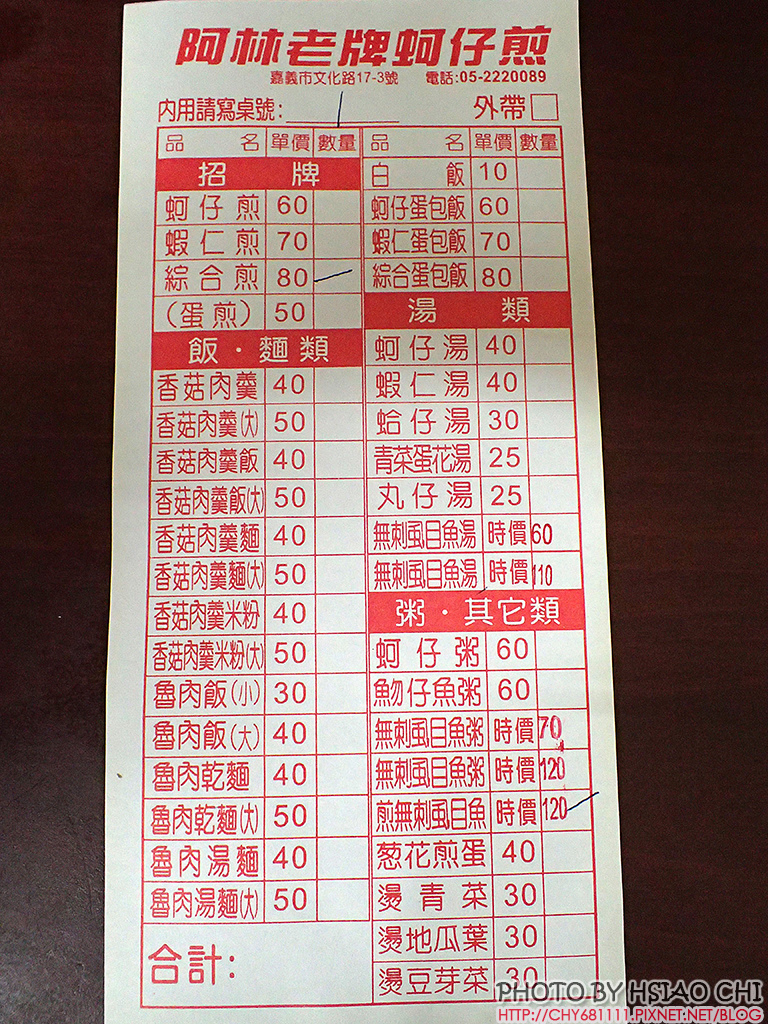 阿林老牌蚵仔煎
嘉義市文化路17-3號 電話:05-2220089
內用請寫桌號: 1 外帶
品名 單價 數量
招牌
蚵仔煎 60
蝦仁煎 70
綜合煎 80
(蛋煎) 50
飯·麵類
香菇肉羹 40
香菇肉羹(大) 50
香菇肉羹飯 40
香菇肉羹飯(大) 50
香菇肉羹麵 40
香菇肉羹麵(大) 50
香菇肉羹米粉 40
香菇肉羹米粉(大) 50
魯肉飯(小) 30
魯肉飯(大) 40
魯肉乾麵 40
魯肉乾麵(大) 50
魯肉湯麵 40
魯肉湯麵(大) 50
合計:
品名 單價 數量
白飯 10
蚵仔蛋包飯 60
蝦仁蛋包飯 70
綜合蛋包飯 80
湯類
蚵仔湯 40
蝦仁湯 40
蛤仔湯 30
青菜蛋花湯 25
丸仔湯 25
無刺虱目魚湯 時價 60
無刺虱目魚湯 時價 110
粥·其它類
蚵仔粥 60
魩仔魚粥 60
無刺虱目魚粥 時價 70
無刺虱目魚粥 時價 120
煎無刺虱目魚 時價 120
葱花煎蛋 40
燙青菜 30
燙地瓜葉 30
燙豆芽菜 30
PHOTO BY HSIAO CHI
HTTP://CHY681111.PIXNET.NET/BLOG